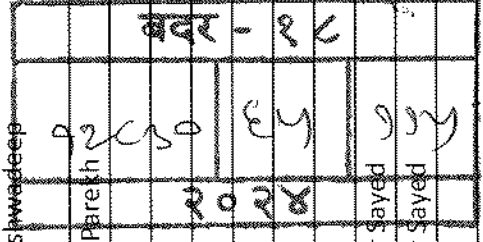 बदर - १८
१२८३० ६५ ११५
२०२४
shwadeep
Parekh
Sayed
Sayed